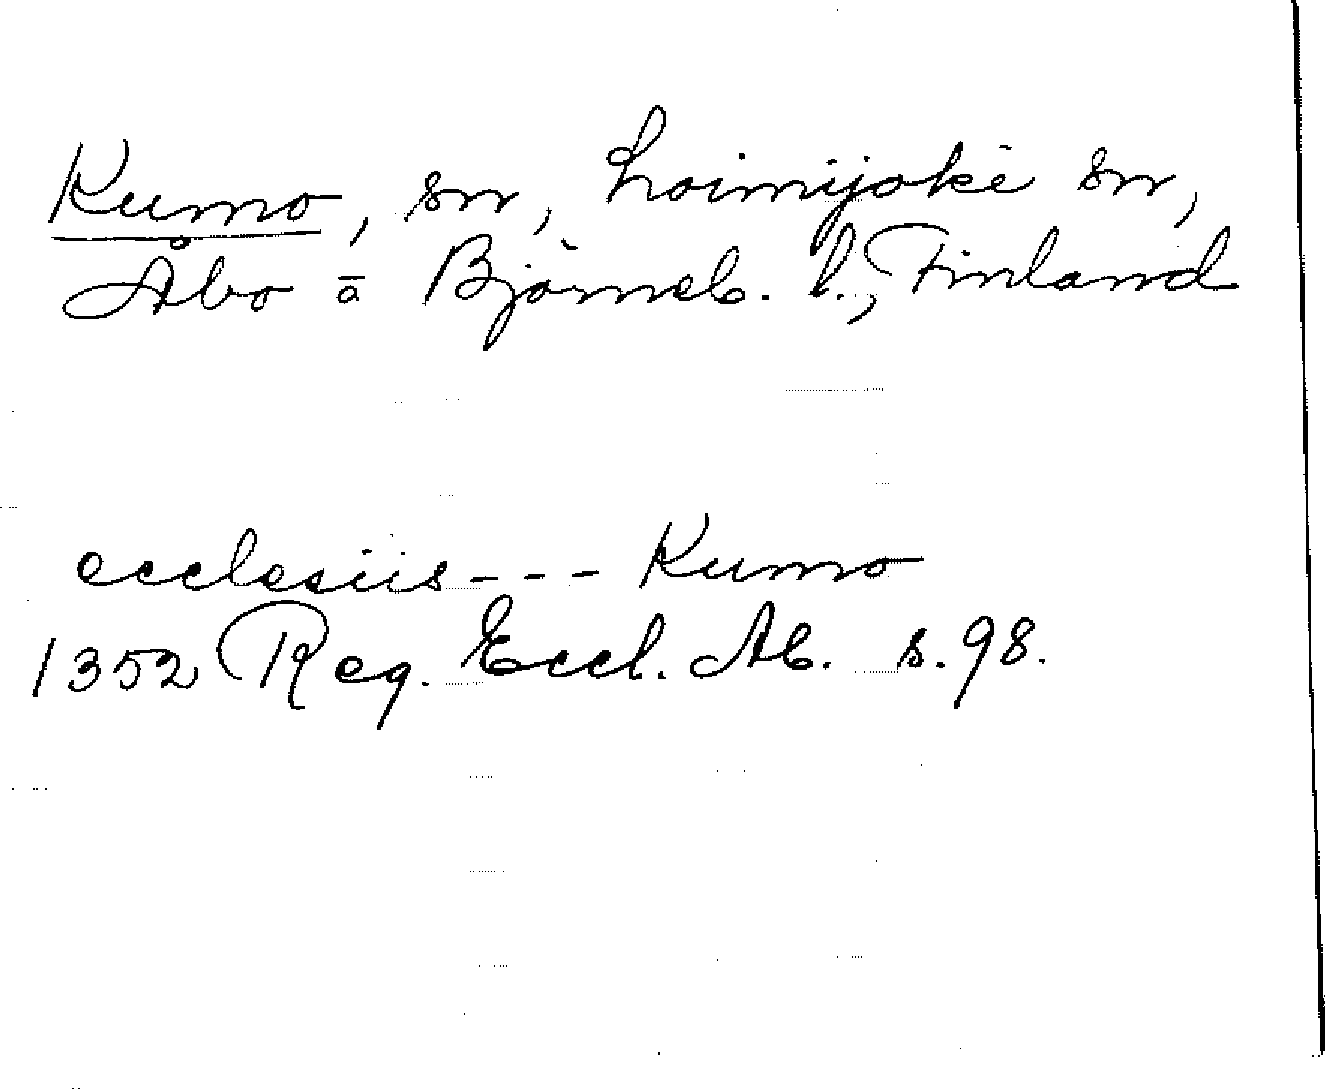 Kumo, sn, Loimijoki sn,
Åbo ā Björneb. l., Finland
ecclesiis - - - Kumo
1352 Reg. Eccl. Ab. s. 98.